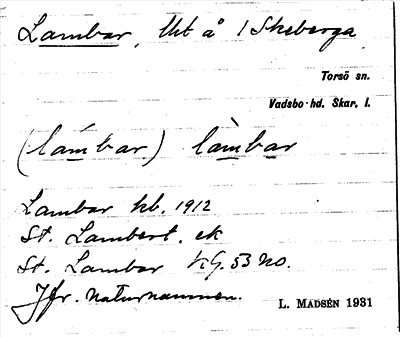 Lambar, tht å 1 Skeberga
Torsö sn.
Vadsbo hd. Skar. l.
(lam̀bar) lam̀bar
Lambar kb. 1912
St. Lambert. ek
St. Lambar KG. 53 NO.
Jfr. naturnamnen.
L. MADSÉN 1931